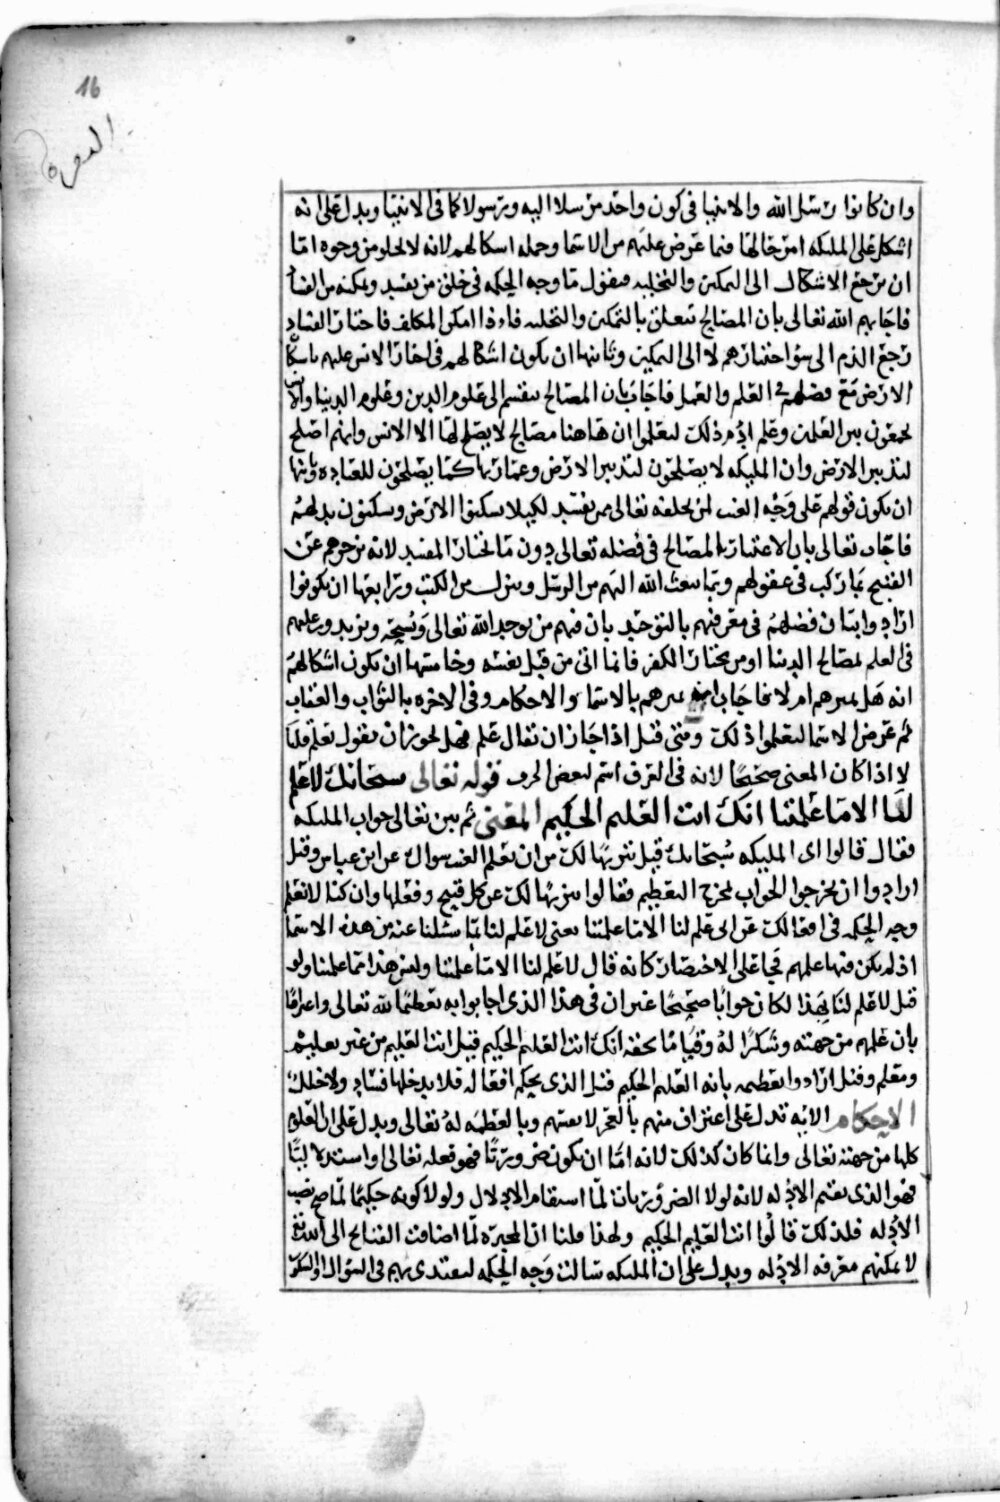 16
البقرة
وان كانوا رسل الله والانبيا في كون واحد مرسلا اليه ورسولا كما في الانبيا ويدل على انه
اشكل على المليكه امر حالها فيما عرض عليهم من الاسما وجمله اشكالهم لانه لا يخلو من وجوه اما
ان يرجع الاشكال الى التمكين والتخليه فيقول ما وجه الحكمه في خلق من يفسد وتمكنه من الفساد
فاجابهم الله تعالى بان المصالح تتعلق بالتمكين والتخليه فاذا امكن المكلف فاختار الفساد
رجع الذم الى سو اختيارهم لا الى التمكين وثانيها ان يكون اشكالهم في اختار الانس عليهم باسكان
الارض مع فضلهم في العلم والعمل فاجاب بان المصالح تنقسم الى علوم الدين وعلوم الدنيا
يجمعون بين العلمين وعلم ادم ذلك ليعلموا ان هاهنا مصالح لا يصلح لها الا الانس وانهم اصلح
لتدبير الارض وان المليكه لا يصلحون لتدبير الارض وعمارتها كما يصلحون للعباده وثالثها
ان يكون قولهم على وجه العتب لمن يخلفه تعالى ممن يفسد لكيلا يسكنوا الارض ويسكنون بدلهم
فاجاب تعالى بان الاعتبار بالمصالح في فضله تعالى دون ما يختار المفسد لانه زجرهم عن
القبيح بما ركب في عقولهم وبما يبعث الله اليهم من الرسل وينزل من الكتب ورابعها ان يكونوا
ارادوا ابتان فضلهم في معرفتهم بالتوحيد بان فيهم من يوحد الله تعالى ويسبحه ويزيدون عليهم
في العلم بمصالح الدنيا او من يختار الكفر فانما اتى من قبل نفسه وخامسها ان يكون اشكالهم
انه هل يميزهم ام لا فاجاب انه يميزهم بالاسما والاحكام وفي الاخره بالثواب والعقاب
ثم عرض الاسما ليعلموا ذلك ومتى قيل اذا جاز ان يقال علم فهل يجوز ان يقول تعلم قلنا
لا اذا كان المعنى صحيحا لانه في العرف اسم لبعض الحرف قوله تعالى سبحانك لا علم
لنا الا ما علمتنا انك انت العليم الحكيم المعنى ثم بين تعالى جواب المليكه
فقال قالوا اى المليكه سبحانك قيل تنزيها لك من ان يعلم الغيب سواك عن ابن عباس وقيل
ارادوا ان يخرجوا الجواب مخرج التعظيم فقالوا تنزيها لك عن كل قبيح وفعلها وان كنا لا نعلم
وجه الحكمه في افعالك عن ابى علم لنا الا ما علمتنا يعنى لا علم لنا بما سئلنا عنه من هذه الاسما
اذ لم يكن فيها علمهم فجا على الاختصار كانه قال لا علم لنا الا ما علمتنا وليس هذا مما علمتنا ولو
قيل لا علم لنا بهذا لكان جوابا صحيحا غير ان في هذا الذى اجابوا به تعظيما لله تعالى واعترافا
بان علمهم من جهته وشكرا له وقياما بحقه انك انت العليم الحكيم قيل انت العليم من غير تعليم
ومعلم وقيل ارادوا تعظيمه بانه العليم الحكيم قيل الذى يحكم افعاله فلا يدخلها فساد ولا خلل
الاحكام الايه تدل على اعتراف منهم بالعجز لانفسهم وبالعظمه له تعالى ويدل على ان العلوم
كلها من جهته تعالى وانما كان كذلك لانه اما ان يكون ضروريا فهو فعله تعالى او استدلاليا
فهو الذى يقيم الادله لانه لولا الضروريات لما استقام الادلال ولولا كونه حكيما لما صح نصب
الادله فلذلك قالوا انت العليم الحكيم ولهذا قلنا ان المجبره لما اضافت القبائح الى الله تعالى
لا يمكنهم معرفه الادله ويدل على ان المليكه سالت وجه الحكمه ليقتدى بهم في السوال